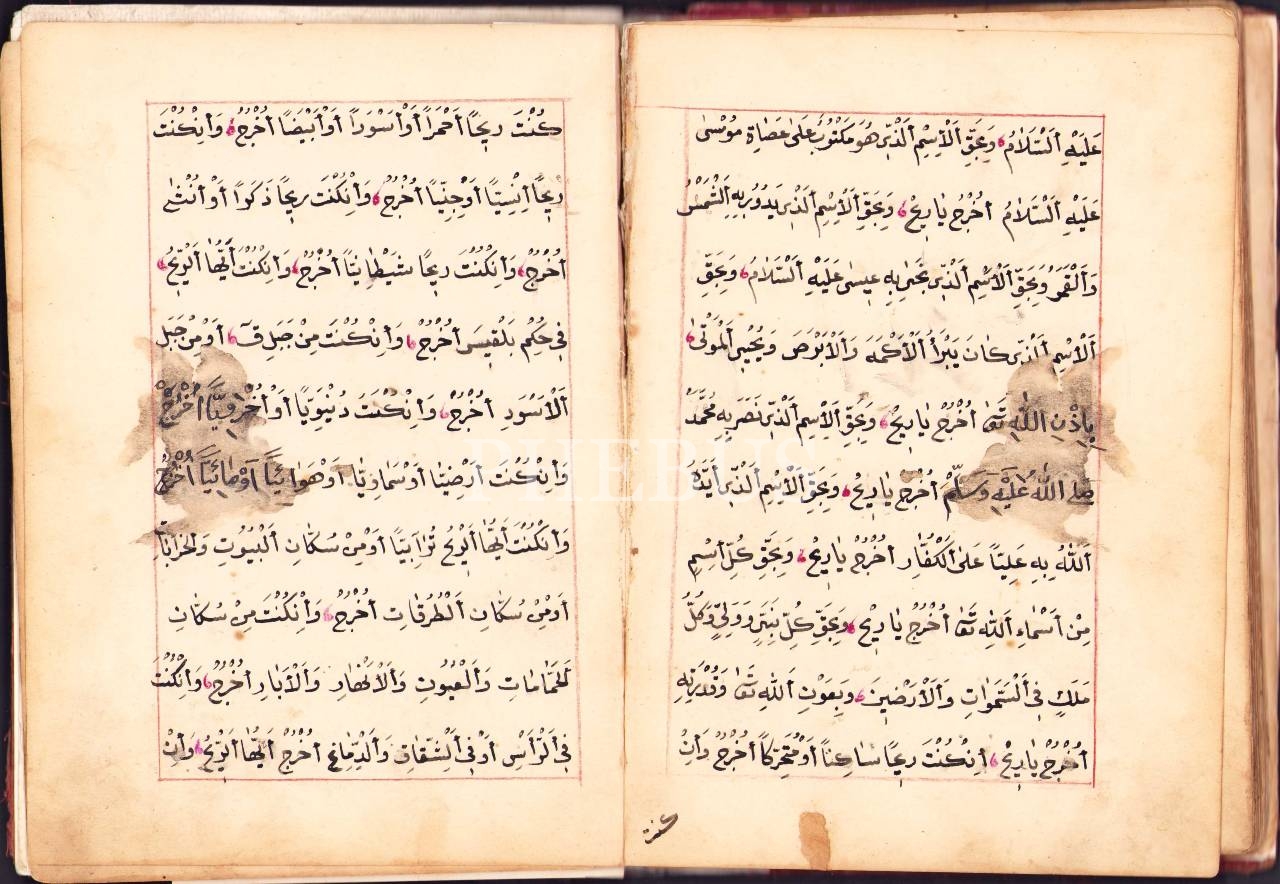 عَلَيْهِ اَلسَّلَامُ وَبِحَقِّ اَلْاِسْمِ اَلَّذِي هُوَ مَكْتُوبٌ عَلٰى عَصَاةِ مُوْسٰى
عَلَيْهِ اَلسَّلَامُ اُخْرُجْ يَا رِيحْ وَبِحَقِّ اَلْاِسْمِ اَلَّذِي يَدُورُ بِهِ اَلشَّمْسُ
وَاَلْقَمَرُ وَبِحَقِّ اَلْاِسْمِ اَلَّذِي بِهِ عِيسٰى عَلَيْهِ اَلسَّلَامُ وَبِحَقِّ
اَلْاِسْمِ اَلَّذِي كَانَ يَبْرَأُ اَلْاَكْمَهَ وَالْاَبْرَصَ وَيُحْيِي اَلْمَوْتٰى
بِاِذْنِ اللّٰهِ تَعَالٰى اُخْرُجْ يَا رِيحْ وَبِحَقِّ اَلْاِسْمِ اَلَّذِي نَصَرَ بِهِ مُحَمَّدْ
صَلَّى اللّٰهُ عَلَيْهِ وَسَلَّمْ اُخْرُجْ يَا رِيحْ وَبِحَقِّ اَلْاِسْمِ اَلَّذِي اَيَّدَهُ
اَللّٰهُ بِهِ عَلِيّاً عَلَى اَلْكُفَّارِ اُخْرُجْ يَا رِيحْ وَبِحَقِّ كُلِّ اِسْمٍ
مِنْ اَسْمَاءِ اَللّٰهِ تَعَالٰى اُخْرُجْ يَا رِيحْ وَبِحَقِّ كُلِّ نَبِيٍّ وَوَلِيٍّ وَكُلِّ
مَلَكٍ فِي اَلسَّمٰوَاتِ وَاَلْاَرَضِينَ وَبِعَوْنِ اَللّٰهِ تَعَالٰى وَقُدْرَتِهِ
اُخْرُجْ يَا رِيحْ اِنْ كُنْتَ رِيحاً سَاكِناً اَوْ مُتَحَرِّكاً اُخْرُجْ وَاِنْ
كُنْتَ
كُنْتَ رِيحاً اَحْمَراً اَوْ اَسْوَداً اَوْ اَبْيَضاً اُخْرُجْ وَاِنْ كُنْتَ
رِيحاً اِنْسِيّاً اَوْ جِنِّيّاً اُخْرُجْ وَاِنْ كُنْتَ رِيحاً ذَكَراً اَوْ اُنْثٰى
اُخْرُجْ وَاِنْ كُنْتَ رِيحاً شَيْطَانِيّاً اُخْرُجْ وَاِنْ كُنْتَ اَيُّهَا اَلرِّيحُ
فِي حُكْمِ بَلْقِيسَ اُخْرُجْ وَاِنْ كُنْتَ مِنْ جَبَلِ قٓ اَوْ مِنْ جَبَلِ
اَلْاَسْوَدِ اُخْرُجْ وَاِنْ كُنْتَ دُنْيَوِيّاً اَوْ اُخْرَوِيّاً اُخْرُجْ
وَاِنْ كُنْتَ اَرْضِيّاً اَوْ سَمَاوِيّاً اَوْ هَوَائِيّاً اَوْ مَائِيّاً اُخْرُجْ
وَاِنْ كُنْتَ اَيُّهَا اَلرِّيحُ تُرَابِيّاً اَوْ مِنْ سُكَّانِ اَلْبُيُوتِ وَالْخَرَابَاتِ
اَوْ مِنْ سُكَّانِ اَلْطُرُقَاتِ اُخْرُجْ وَاِنْ كُنْتَ مِنْ سُكَّانِ
اَلْحَمَّامَاتِ وَاَلْعُيُونِ وَاَلْاَنْهَارِ وَاَلْاٰبَارِ اُخْرُجْ وَاِنْ كُنْتَ
فِي اَلرَّأْسِ اَوْ فِي اَلشِّقَاقِ وَاَلدِّمَاغِ اُخْرُجْ اَيُّهَا اَلرِّيحُ وَاِنْ
PHEBUS